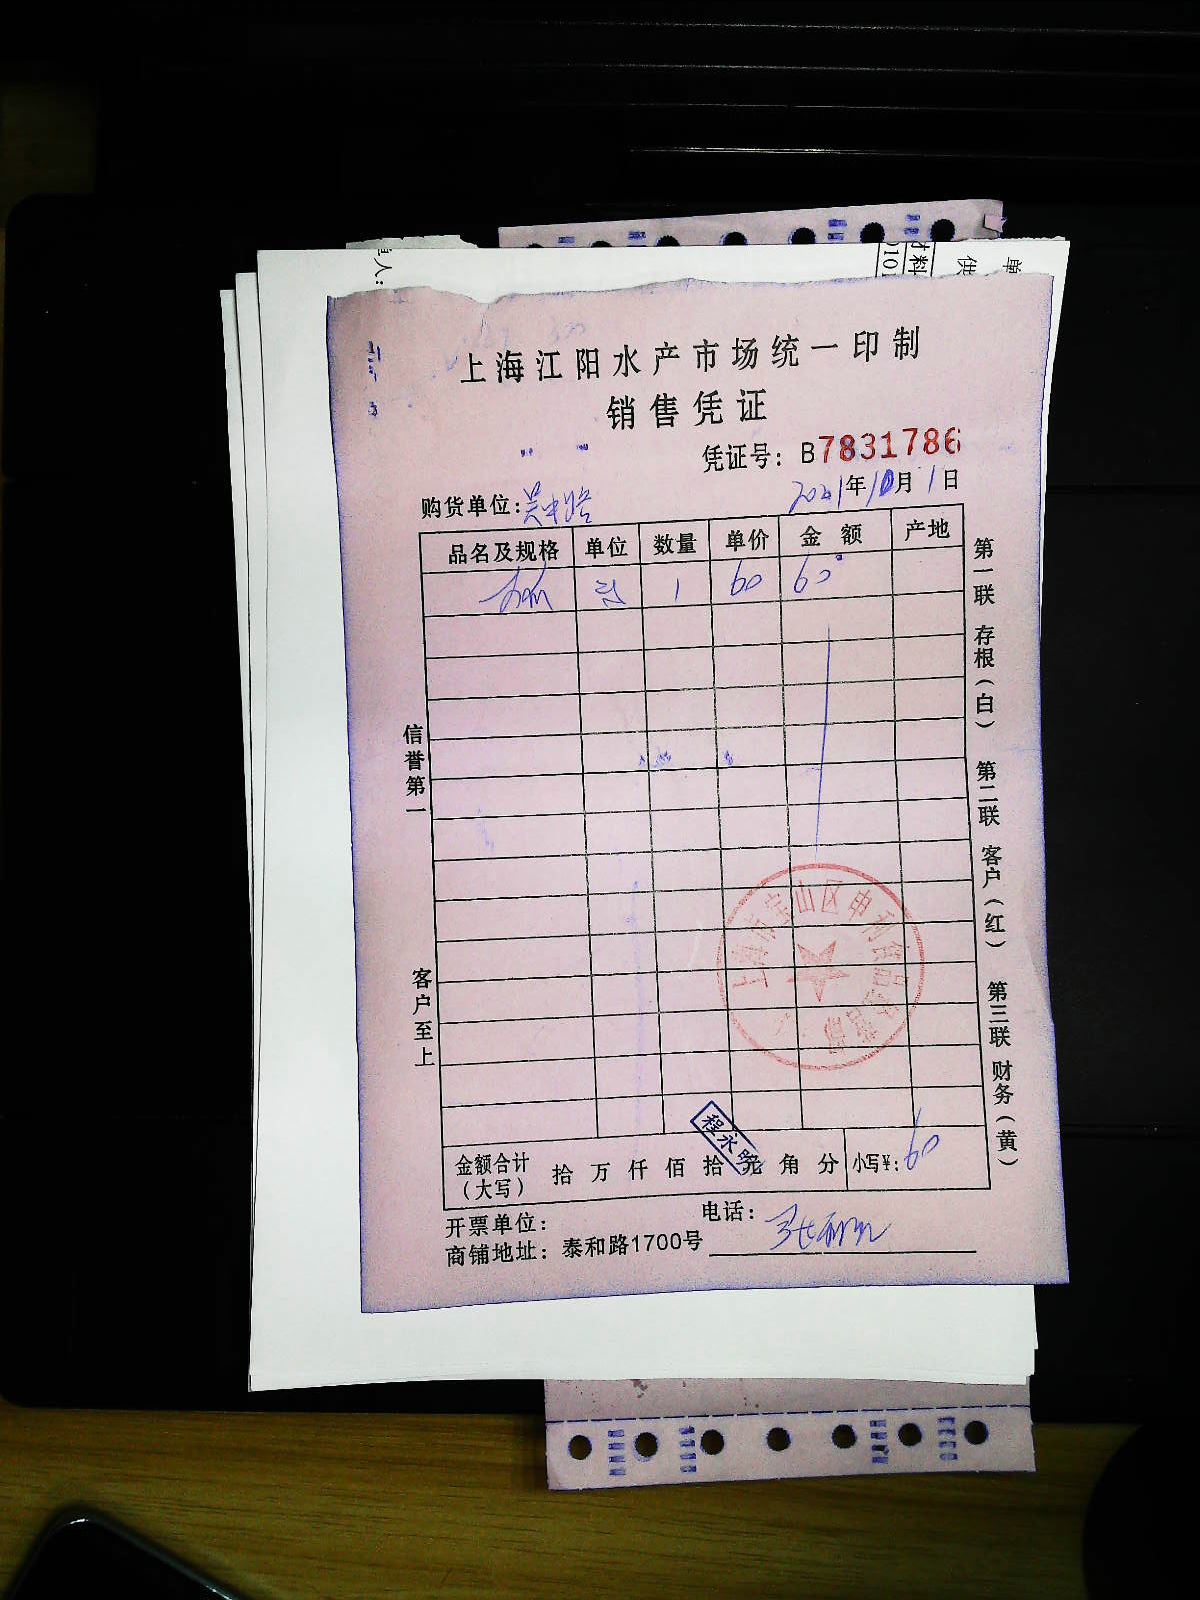 材料
供
单
上海江阳水产市场统一印制
销售凭证
凭证号: B7831786
2021年10月1日
购货单位:
品名及规格 单位 数量 单价 金额 产地
1 60 60
第一联 存根(白) 第二联 客户(红) 第三联 财务(黄)
信誉第一 客户至上
上海市宝山区申利食品经营部
程永
金额合计(大写) 拾 万 仟 佰 拾 元 角 分 小写¥: 60
开票单位: 电话:
商铺地址: 泰和路1700号